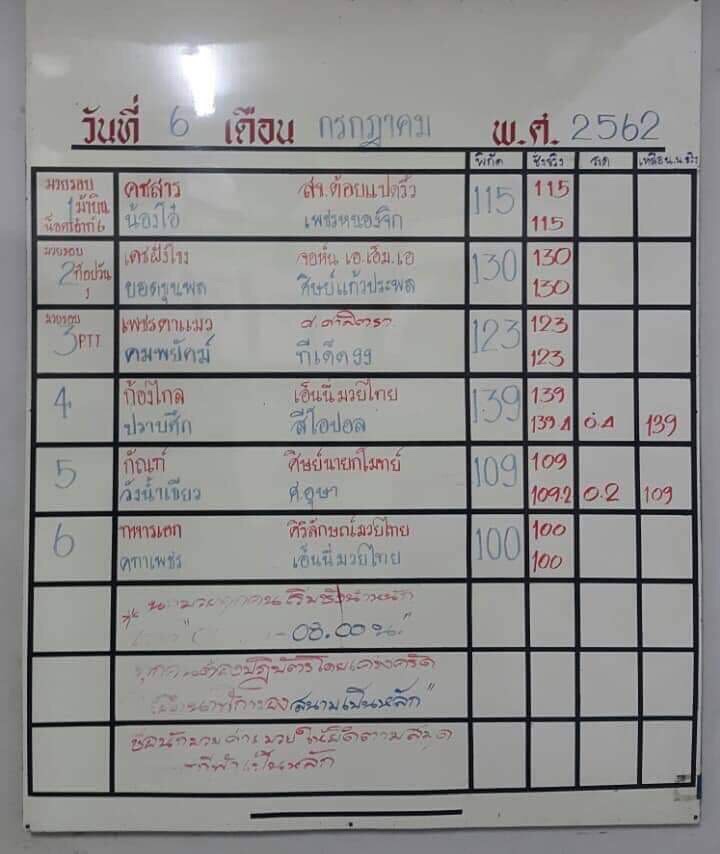 วันที่ 6 เดือน กรกฎาคม พ.ศ. 2562
พิกัด ชั่งจริง ลด เหลือ น.น. จริง
มวยรอบ คชสาร สจ.ต้อยแปดริ้ว 115 115
1 น้องโอ๋ เพชรหนองจิก 115
มวยรอบ เดชฝั่งโขง จอหัน เอ.เอ็ม.เอ 130 130
2 ท๊อปวัน ยอดขุนพล ศิษย์แก้วประพล 130
มวยรอบ เพชรตาแมว 123 123
3 P.T.T คมพยัคฆ์ ทีเด็ด99 123
4 ก้องไกล เอ็นนี่มวยไทย 139 139
ปราบศึก สีโอปอล 139.4 0.4 139
5 กัณฑ์ ศิษย์นายกโมทย์ 109 109
วังน้ำเขียว ศ.อุษา 109.2 0.2 109
6 ทหารเอก ศิริลักษณ์มวยไทย 100 100
คทาเพชร เอ็นนี่มวยไทย 100
เริ่มชั่งน้ำหนัก
08.00 น."
ต้องปฏิบัติโดยเคร่งครัด
ของสนามเป็นหลัก"
ชื่อนักมวย ค่ายมวย ให้ยึดตามสมุด
กีฬาเป็นหลัก